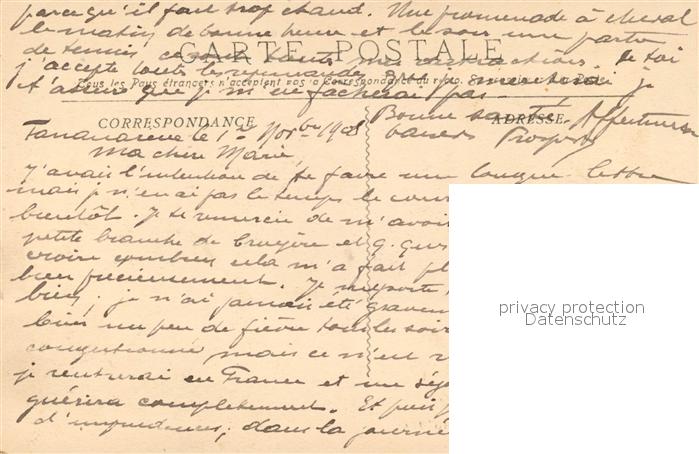 parce qu'il fait trop chaud. Une promenade à cheval
le matin de bonne heure et le soir une partie
de tennis, ce sont toutes mes distractions. De toi
CARTE POSTALE
j'accepte toutes les
Tous les Pays étrangers n'acceptent pas la Correspondance au recto.
t'assure que je m'en fâcherai pas
Bonne santé, Affectueux
CORRESPONDANCE
ADRESSE
Tananarive le 1er Novbre 1908
baisers Prosper
Ma chère Marie,
J'avais l'intention de te faire une longue lettre
mais je n'en ai pas le temps le cour
bientôt. Je te remercie de m'avoi
petite branche de bruyère et q. qus
croire combien cela m'a fait pl
bien précieusement. Je me porte
bien; je n'ai jamais été gravem
bien un peu de fièvre tous les soir
congestionné mais ce n'est r
je rentrerai en France et un séj
guérira complètement. Et puis j
d'imprudences; dans la journé
privacy protection
Datenschutz